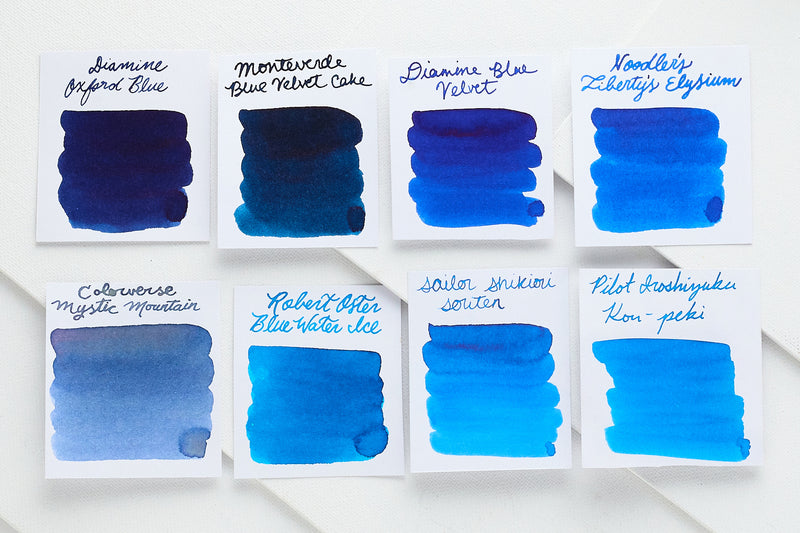 Diamine
Oxford Blue
Monteverde
Blue Velvet Cake
Diamine Blue
Velvet
Noodler's
Liberty's Elysium
Colorverse
Mystic Mountain
Robert Oster
Blue Water Ice
Sailor Shikiori
Souten
Pilot Iroshizuku
Kon-peki